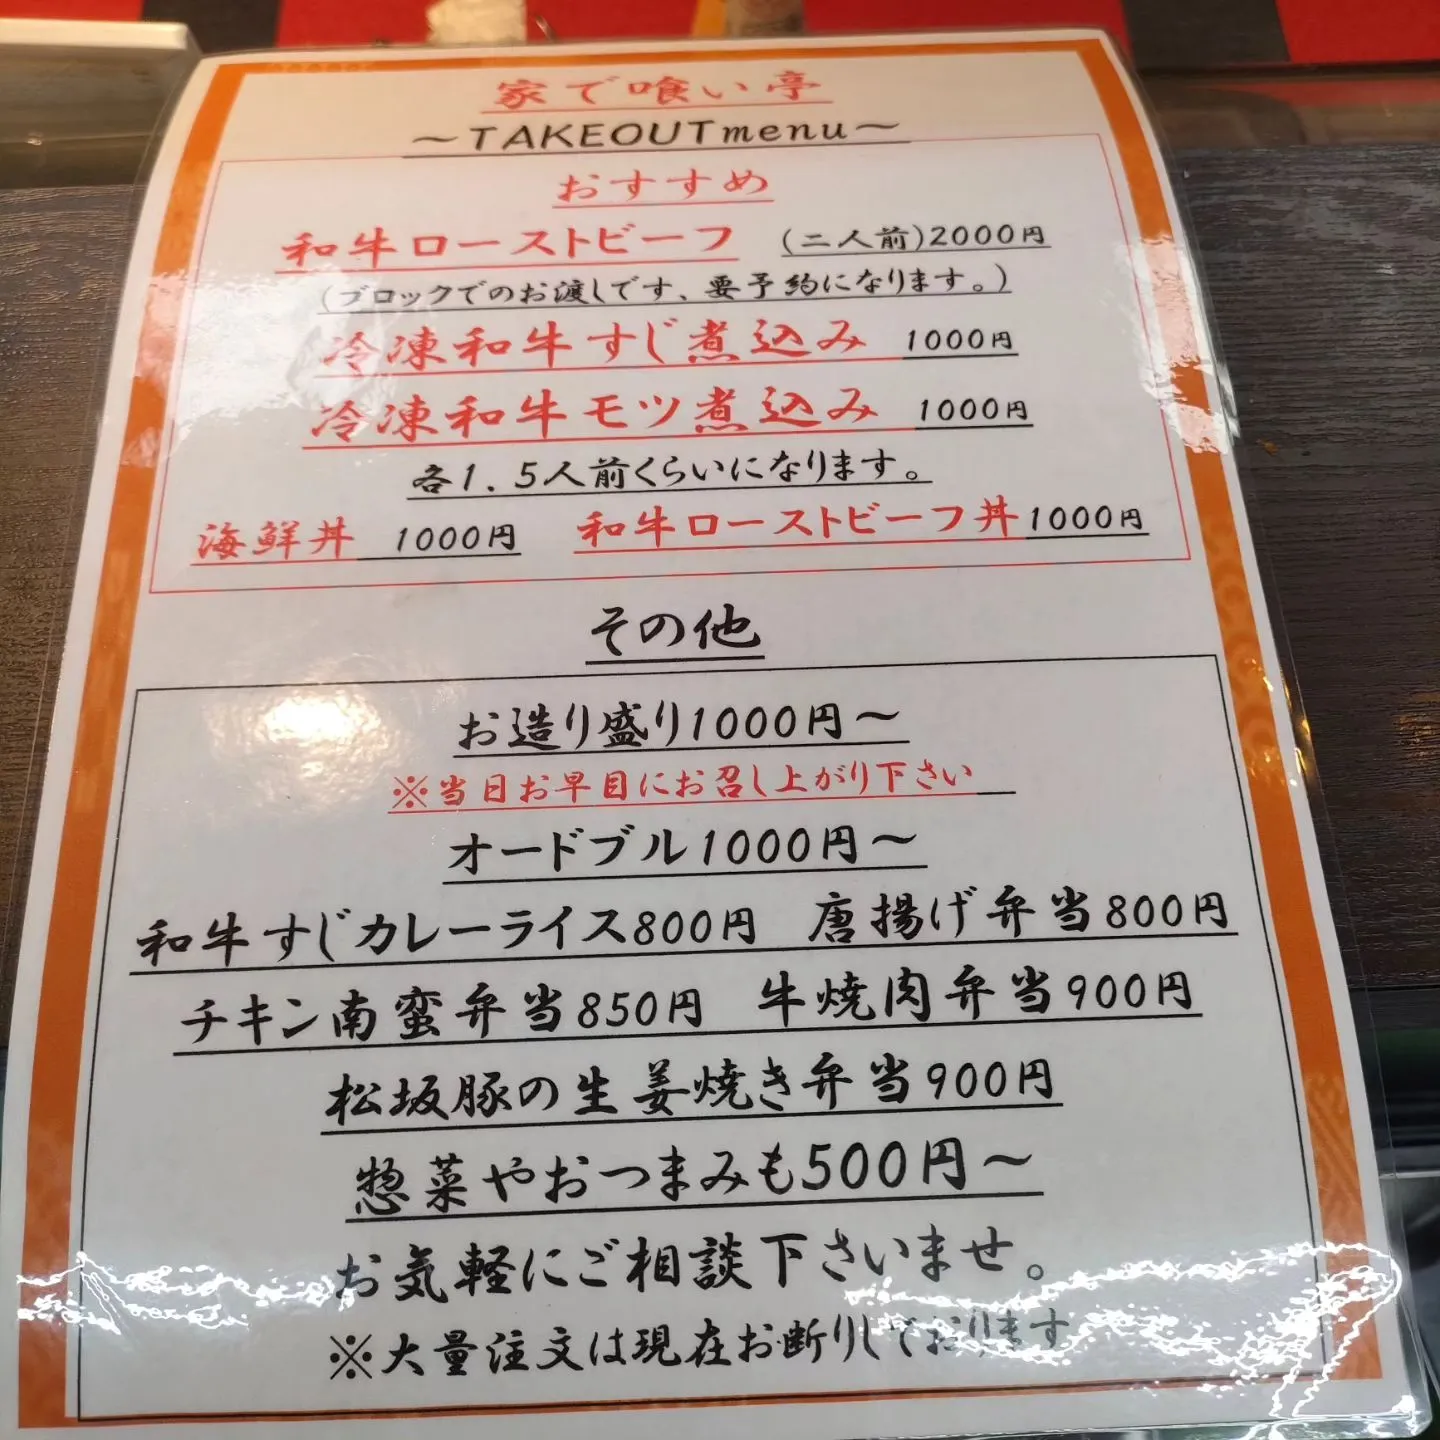 家で喰い亭
～TAKEOUTmenu～
おすすめ
和牛ローストビーフ (二人前)2000円
(ブロックでのお渡しです、要予約になります。)
冷凍和牛すじ煮込み 1000円
冷凍和牛モツ煮込み 1000円
各1.5人前くらいになります。
海鮮丼 1000円 和牛ローストビーフ丼1000円
その他
お造り盛り1000円～
※当日お早目にお召し上がり下さい
オードブル1000円～
和牛すじカレーライス800円 唐揚げ弁当800円
チキン南蛮弁当850円 牛焼肉弁当900円
松坂豚の生姜焼き弁当900円
惣菜やおつまみも500円～
お気軽にご相談下さいませ。
※大量注文は現在お断りしております